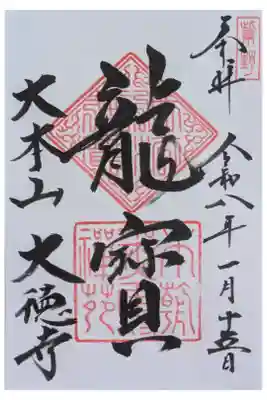 奉拝
令和八年一月十五日
龍寳
大本山 大徳寺
本朝
禪苑